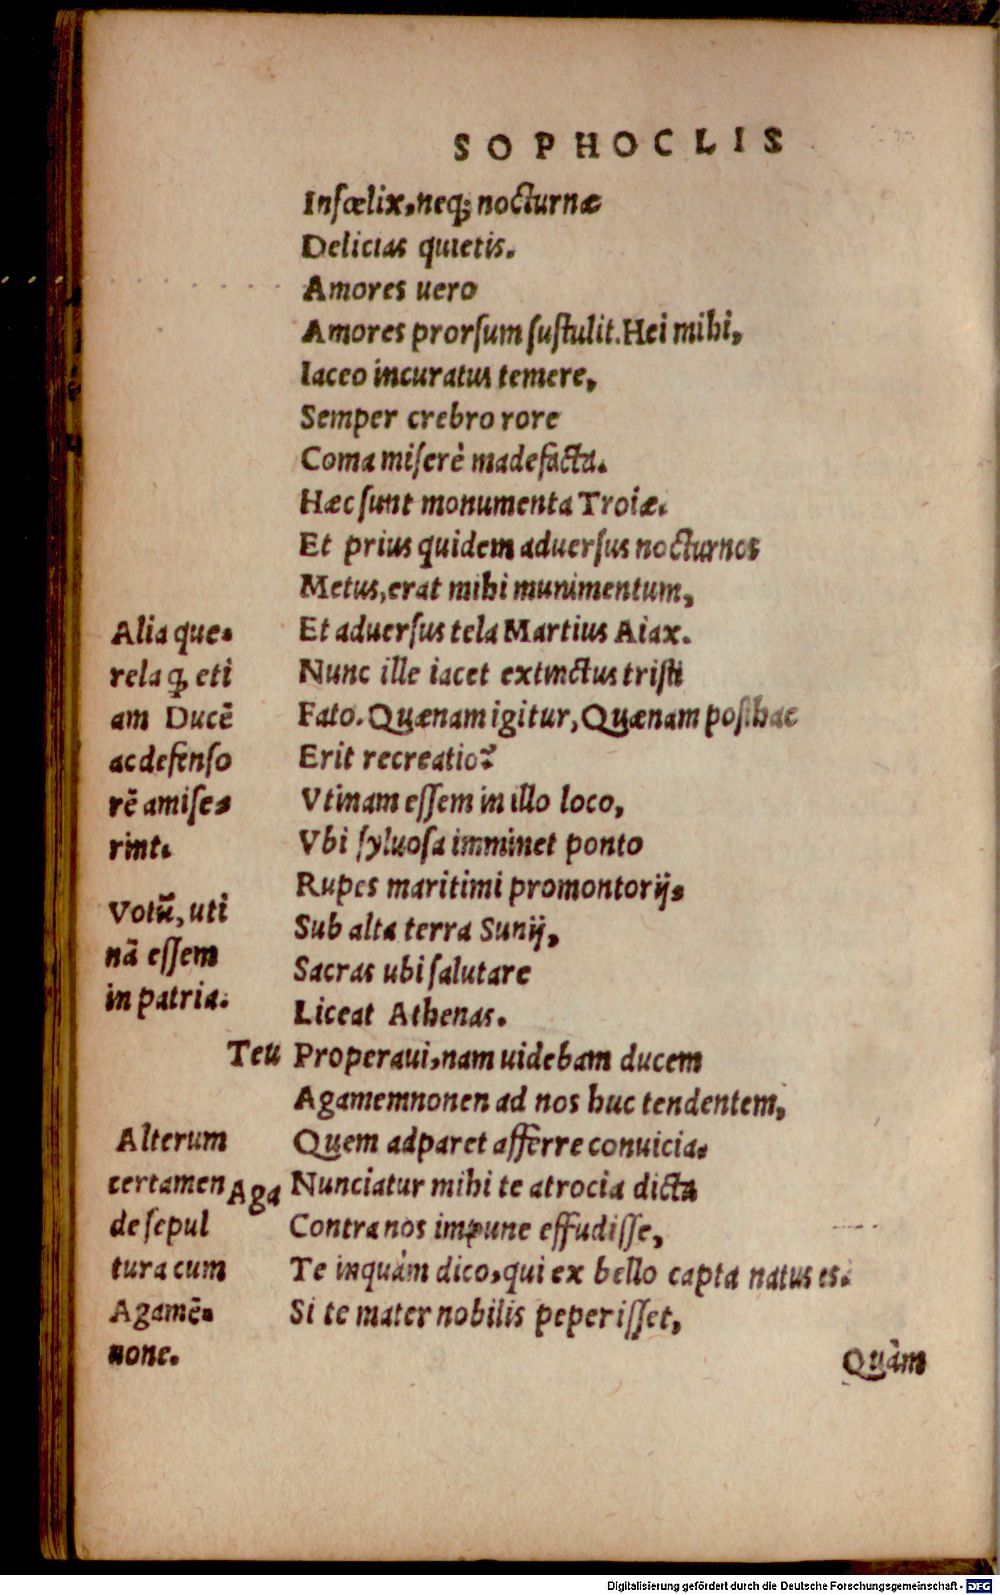 SOPHOCLIS
Infœlix, neq; nocturnæ
Delicias quietis.
Amores uero
Amores prorsum sustulit. Hei mihi,
Iaceo incuratus temere,
Semper crebro rore
Coma miserè madefacta.
Hæc sunt monumenta Troiæ.
Et prius quidem aduersus nocturnos
Metus, erat mihi munimentum,
Et aduersus tela Martius Aiax.
Nunc ille iacet extinctus tristi
Fato. Quænam igitur, Quænam posthac
Erit recreatio?
Vtinam essem in illo loco,
Vbi syluosa imminet ponto
Rupes maritimi promontorij,
Sub alta terra Sunij,
Sacras ubi salutare
Liceat Athenas.
Teu Properaui, nam uidebam ducem
Agamemnonen ad nos huc tendentem,
Quem adparet afferre conuicia.
Aga Nunciatur mihi te atrocia dicta
Contra nos impune effudisse,
Te inquàm dico, qui ex bello capta natus es.
Si te mater nobilis peperisset,
Quàm
Alia que-
rela ꝗ eti
am Ducē
ac defenso
rē amise-
rint.
Votū, uti
nā essem
in patria.
Alterum
certamen
de sepul
tura cum
Agamē-
none.
Digitalisierung gefördert durch die Deutsche Forschungsgemeinschaft - DFG